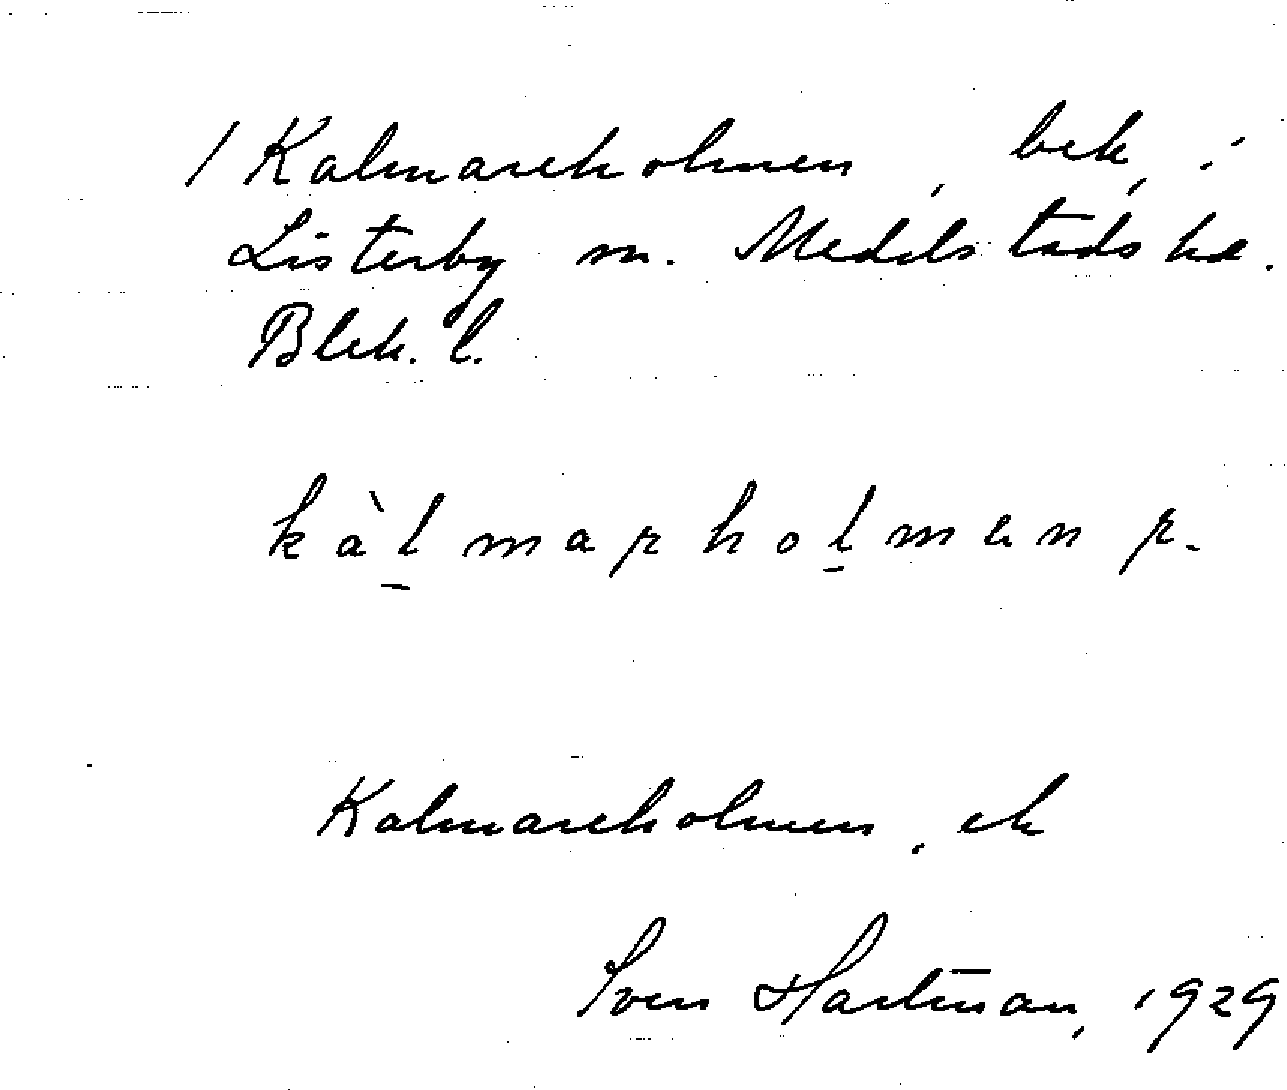 / Kalmareholmen, bek, i
Listerby sn. Medelstads hd.
Blek. l.
kàl̠marhol̠men
Kalmareholmen, ek
Sven Hartman, 1929